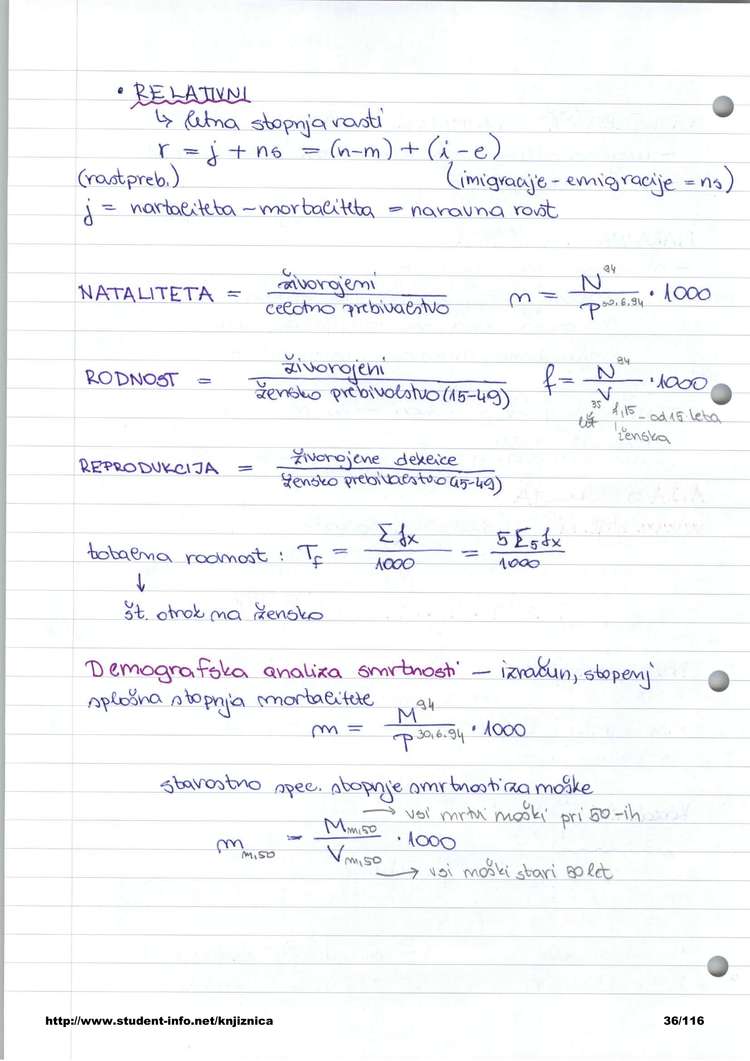 • RELATIVNI
↳ letna stopnja rasti
r = j + ns = (n-m) + (i-e)
(rast preb.) (imigracije - emigracije = ns)
j = nartaliteta - mortaliteta = naravna rast
NATALITETA = živorojeni / celotno prebivalstvo n = N^94 / P^30.6.94 · 1000
RODNOST = živorojeni / žensko prebivalstvo (15-49) f = N^94 / V · 1000
35 f,15 - od 15 leta
ženska
REPRODUKCIJA = živorojene deklice / žensko prebivalstvo (15-49)
totalna rodnost : T_f = Σ fx / 1000 = 5 Σ_5 fx / 1000
↓
št. otrok na žensko
Demografska analiza smrtnosti - izračun, stopenj
splošna stopnja mortalitete
m = M^94 / P^30.6.94 · 1000
starostno spec. stopnje smrtnosti za moške
→ vsi mrtvi moški pri 50-ih
m_m,50 = M_m,50 / V_m,50 · 1000
→ vsi moški stari 50 let
http://www.student-info.net/knjiznica 36/116